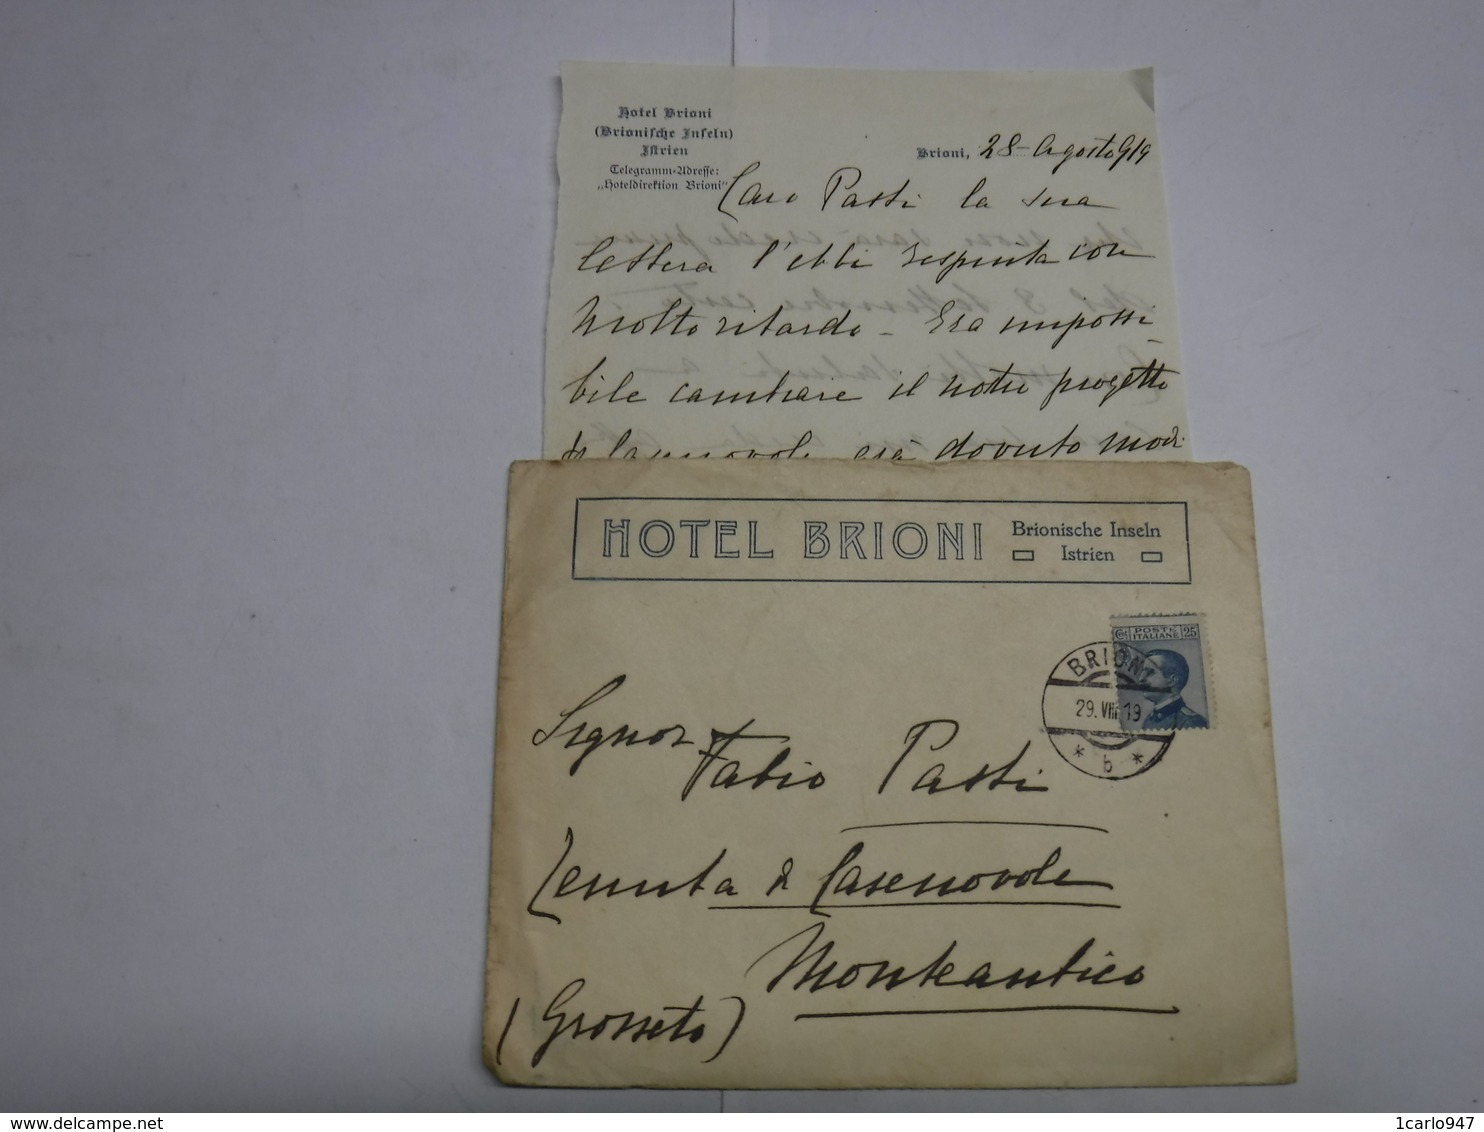 Hotel Brioni
(Brionische Inseln)
Istrien
Telegramm-Adresse:
„Hoteldirektion Brioni"
Brioni, 28 Agosto 919
Caro Pasti la sua
lettera l'ebbi respinta con
molto ritardo - Era impossi
bile cambiare il nostro progetto
di Casenovole era dovuto modi
HOTEL BRIONI
Brionische Inseln
Istrien
Cent POSTE ITALIANE 25
BRIONI
29. VIII 19
* b *
Signor Fabio Pasti
Tenuta di Casenovole
Monteantico
(Grosseto)
www.delcampe.net
1carlo947